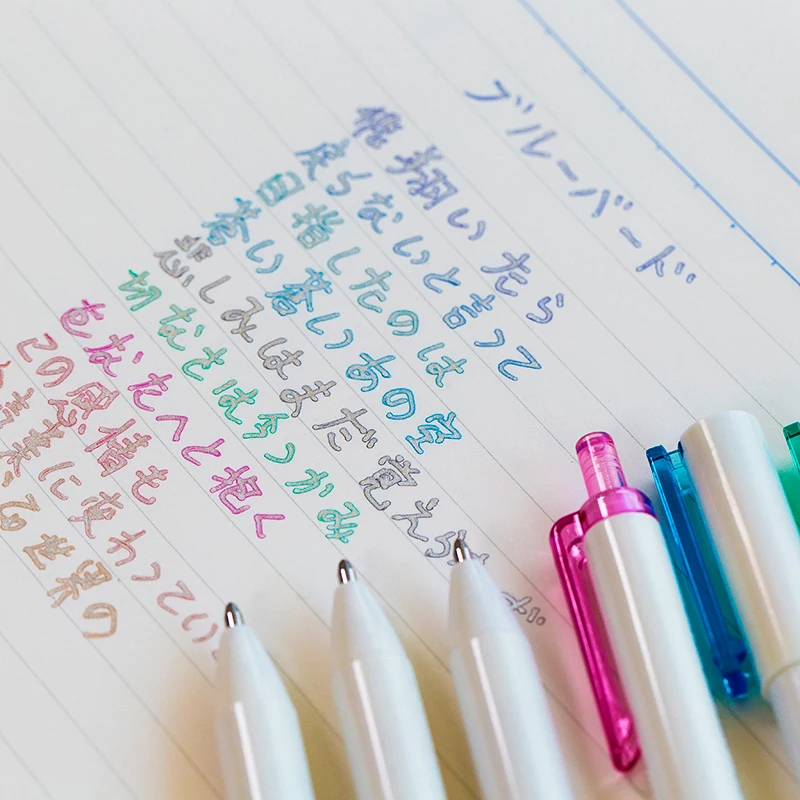 ブルーバード
飛翔いたら
戻らないと言って
目指したのは
蒼い蒼いあの空
悲しみはまだ覚えら
切なさは今つかみ
あなたへと抱く
この感情も
言葉に変わってい
る世界の